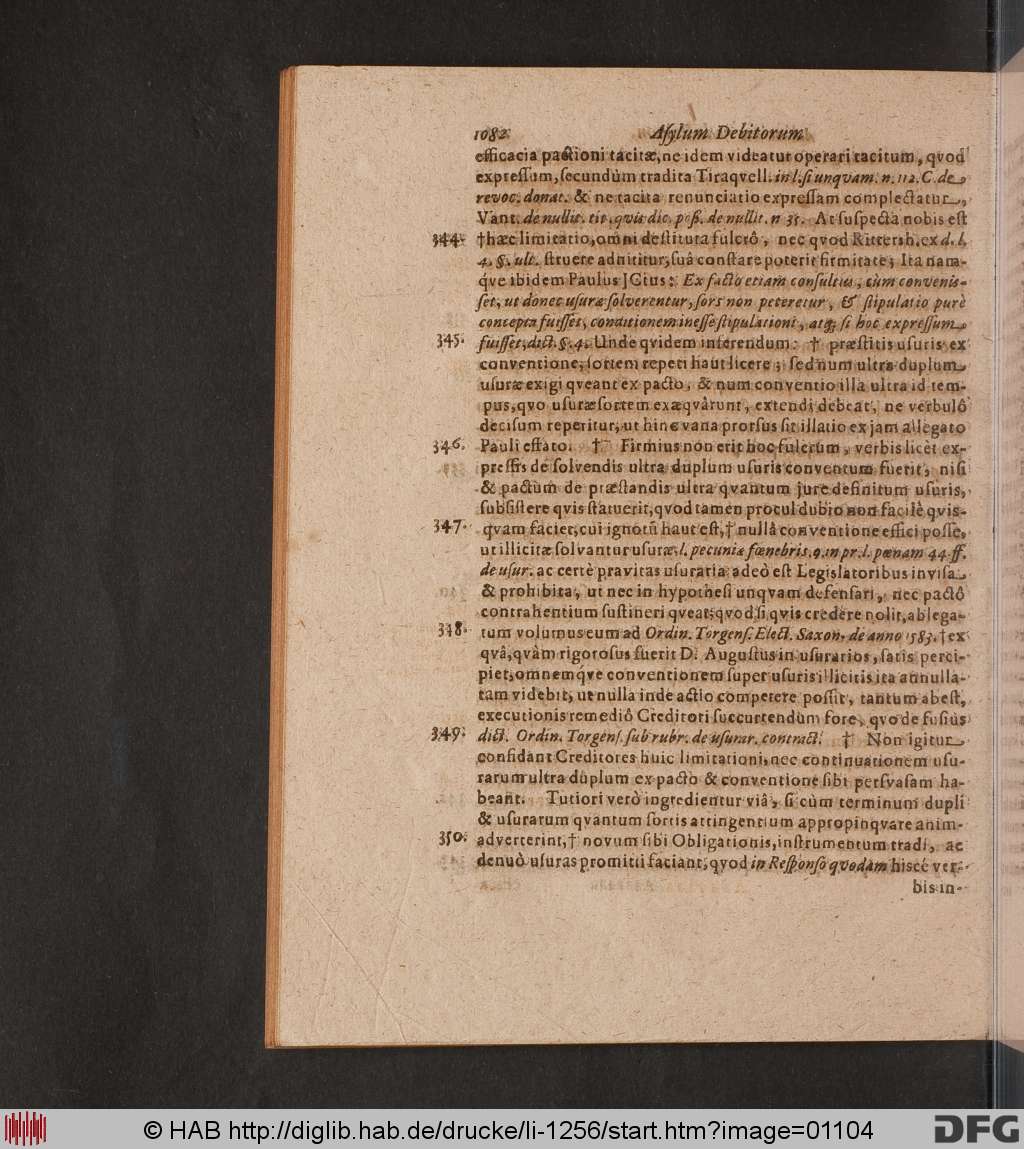 1082 Aſylum Debitorum
efficacia pactioni tacitæ, ne idem videatur operari tacitum, qvod
expreſſum, ſecundùm tradita Tiraqvell. in l. ſi unqvam. n. 112. C. de
revoc. donat. & ne tacita renunciatio expreſſam complectatur,
Vant. de nullit. tit. qvis dic. poß. de nullit. n 35. At ſuſpecta nobis eſt
344. †hæc limitatio, omni deſtituta fulcrô, nec qvod Rittersh. ex d. l.
4. §. ult. ſtruere adnititur, ſuâ conſtare poterit firmitate; Ita nam-
q́ve ibidem Paulus JCtus: Ex facto etiam conſultus, cùm conveniſ-
ſet, ut donec uſuræ ſolverentur, ſors non peteretur, & ſtipulatio purè
concepta fuiſſet, conditionem ineſſe ſtipulationi, atq; ſi hoc expreſſum
345. fuiſſet, dict. §. 4. Unde qvidem inferendum: † præſtitis uſuris ex
conventione, ſortem repeti haut licere; ſed num ultra duplum
uſuræ exigi qveant ex pacto, & num conventio illa ultra id tem-
pus, qvo uſuræ ſortem exæqvârunt, extendi debeat, ne verbulô
deciſum reperitur, ut hinc vana prorſus ſit illatio ex jam allegato
346. Pauli effato. † Firmius non erit hoc fulcrum, verbis licèt ex-
preſſis de ſolvendis ultra duplum uſuris conventum fuerit, niſi
& pactum de præſtandis ultra qvantum jure definitum uſuris,
ſubſiſtere qvis ſtatuerit, qvod tamen procul dubio non facilè qvis-
347. qvam faciet, cui ignotũ haut eſt, † nullâ conventione effici poſſe,
ut illicitæ ſolvantur uſuræ, l. pecuniæ fœnebris. 9. in pr. l. pœnam 44. ff.
de uſur. ac certè pravitas uſuraria adeò eſt Legislatoribus inviſa
& prohibita, ut nec in hypotheſi unqvam defenſari, nec pactô
contrahentium ſuſtineri qveat; qvod ſi qvis credere nolit, ablega-
348. tum volumus eum ad Ordin. Torgenſ. Elect. Saxon. de anno 1583. † ex
qvâ, qvàm rigoroſus fuerit D. Auguſtus in uſurarios, ſatis perci-
piet, omnemq́ve conventionem ſuper uſuris illicitis ita annulla-
tam videbit, ut nulla inde actio competere poſſit, tantum abeſt,
executionis remediô Creditori ſuccurrendum fore, qvo de fuſiùs
349. dict. Ordin. Torgenſ. ſub rubr. de uſurar. contract. † Non igitur
confidant Creditores huic limitationi, nec continuationem uſu-
rarum ultra duplum ex pacto & conventione ſibi perſvaſam ha-
beant. Tutiori verò ingredientur viâ, ſi cùm terminum dupli
& uſurarum qvantum ſortis attingentium appropinqvare anim-
350. adverterint, † novum ſibi Obligationis, inſtrumentum tradi, ac
denuò uſuras promitti faciant, qvod in Reſponſo qvodam hisce ver-
bis in-
© HAB http://diglib.hab.de/drucke/li-1256/start.htm?image=01104
DFG